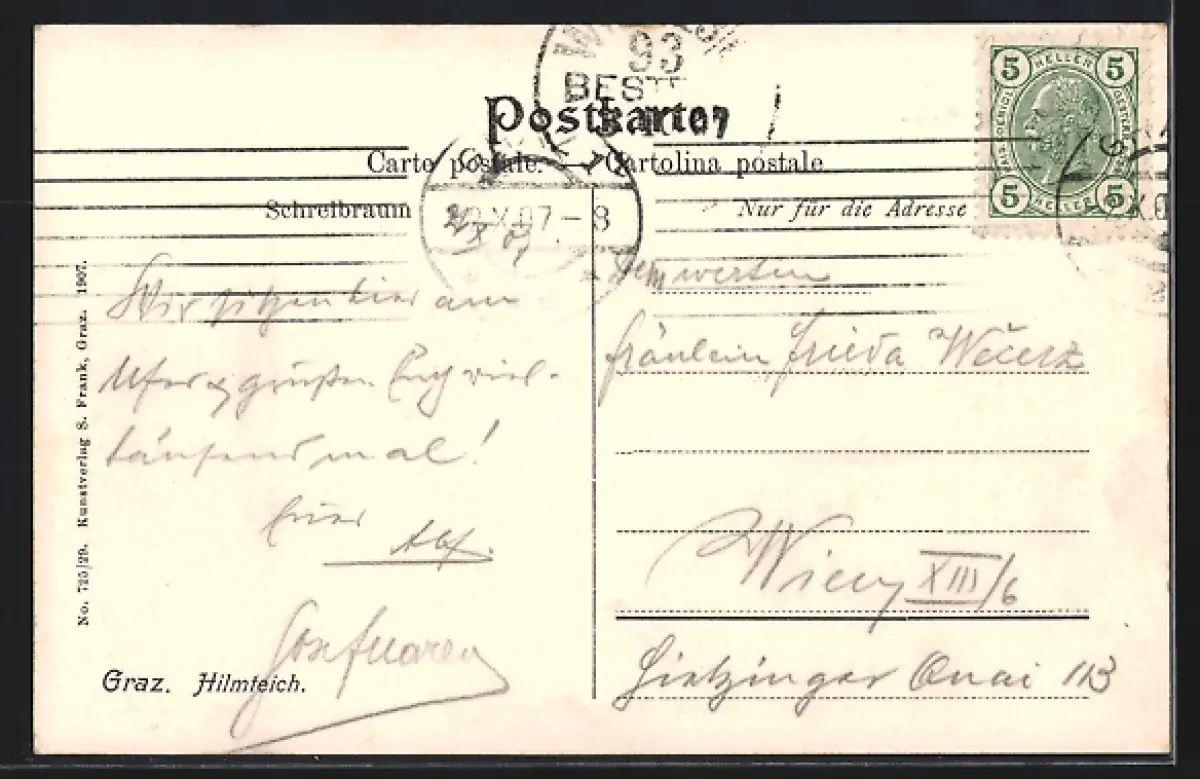 93
BEST
Postkarte
Carte postale. — Cartolina postale.
Schreibraum
Nur für die Adresse
X.07-8
5 HELLER 5
5 HELLER 5
Wir sitzen hier am
Ufer & grüßen Euch viel-
tausendmal!
Euer
Alf.
Dem werten
Fräulein Frieda
Wien XIII/6
Hietzinger Quai 113
Graz. Hilmteich.
No. 725/29. Kunstverlag S. Frank, Graz. 1907.